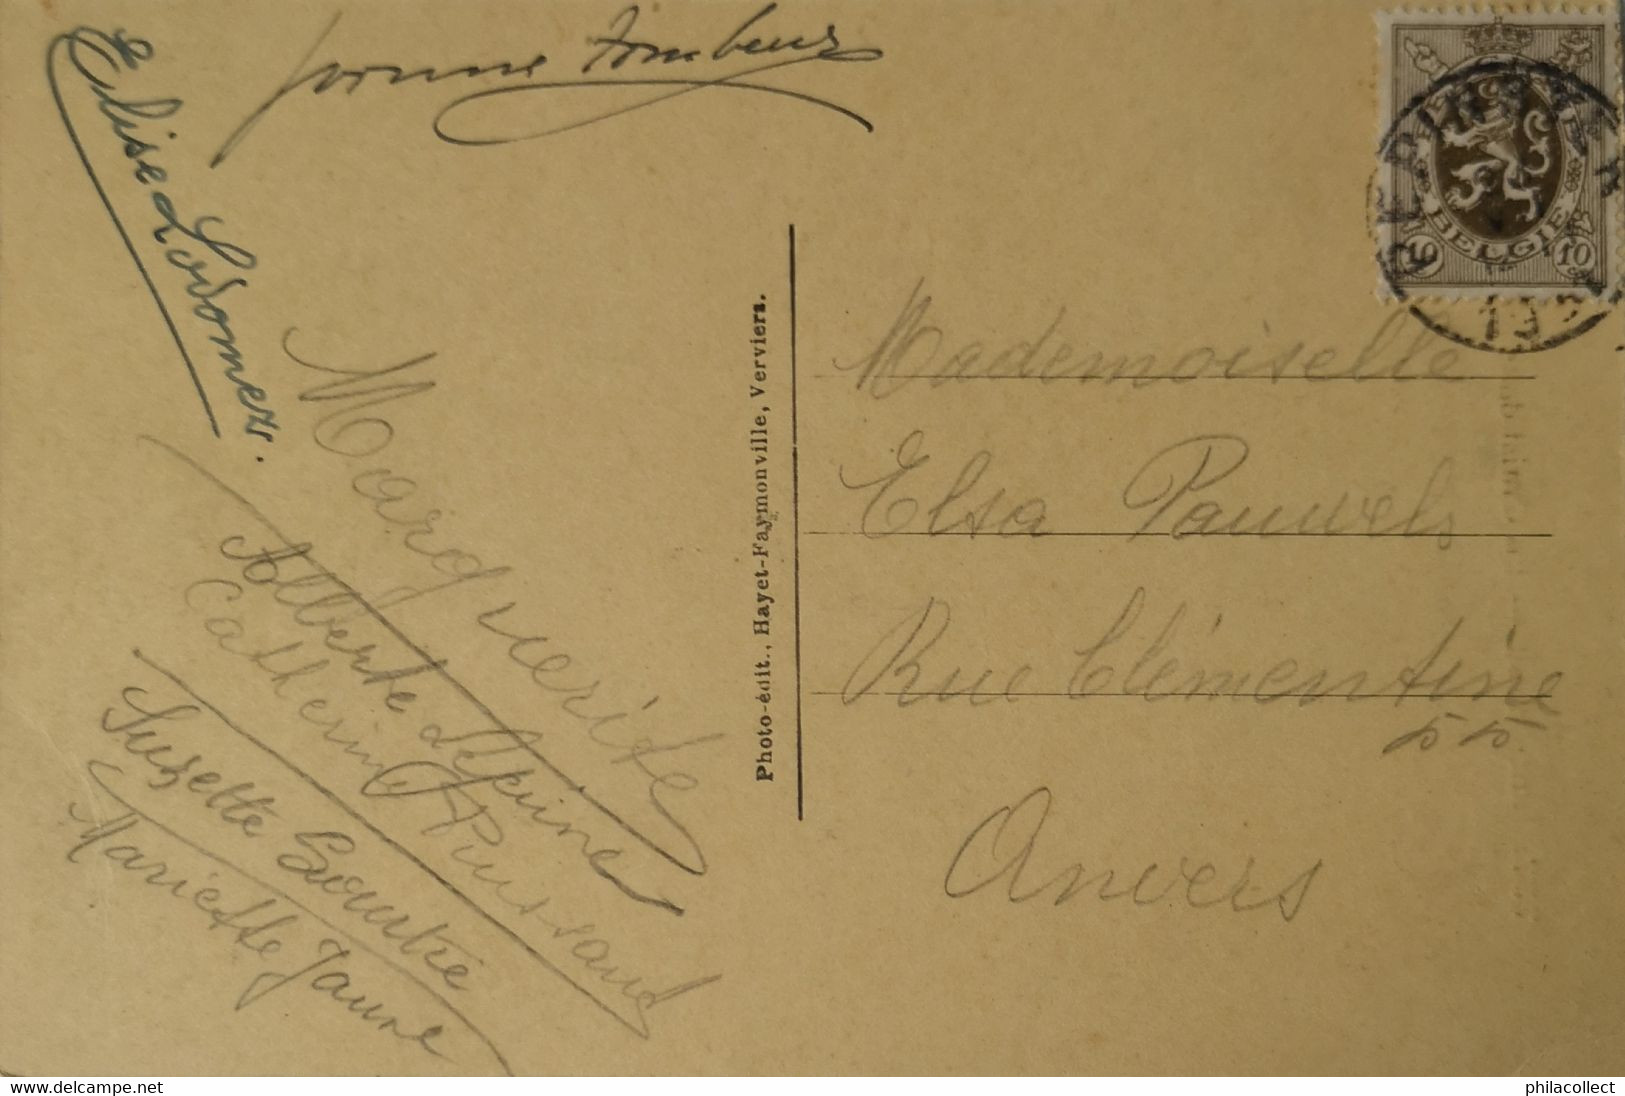 Yvonne Tombeux
Elise Lodomez.
Marguerite
Alberte Lépine
Catherine
Susette
Mariette Jaune
Photo-édit., Hayet-Faymonville, Verviers.
BELGIE
10 10
Mademoiselle
Elsa Pauwels
Rue Clémentine
55
Anvers
www.delcampe.net
philacollect